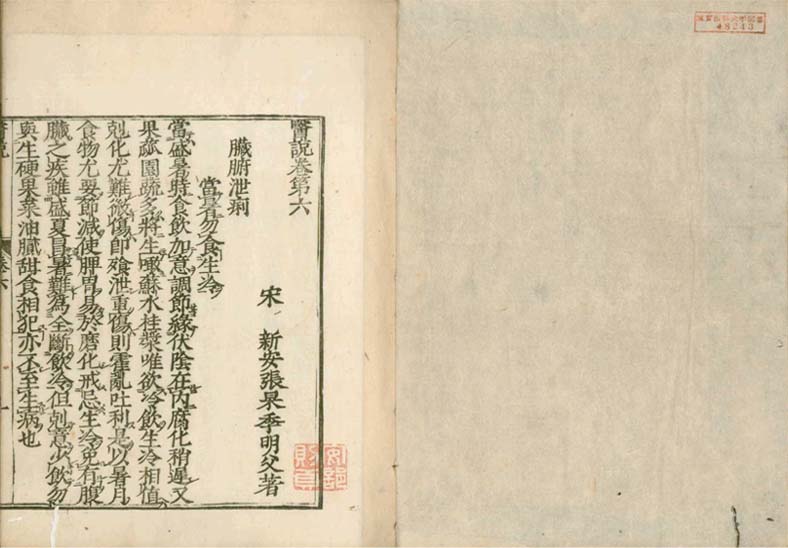 醫說卷第六
宋　新安張杲季明父著
臟腑泄痢
當暑勿食生冷
當盛暑時食飲加意調節緣伏陰在內腐化稍遲又
果蓏園蔬多將生噉蘇水桂漿唯欲冷飲生冷相值
剋化尤難微傷即飱泄重傷則霍亂吐利是以暑月
食物尤要節減使脾胃易於磨化戒忌生冷免有腹
臟之疾雖盛夏冒暑難為全斷飲冷但剋意少飲勿
與生硬果菜油膩甜食相犯亦不至生病也
醫說
卷六
一
48243